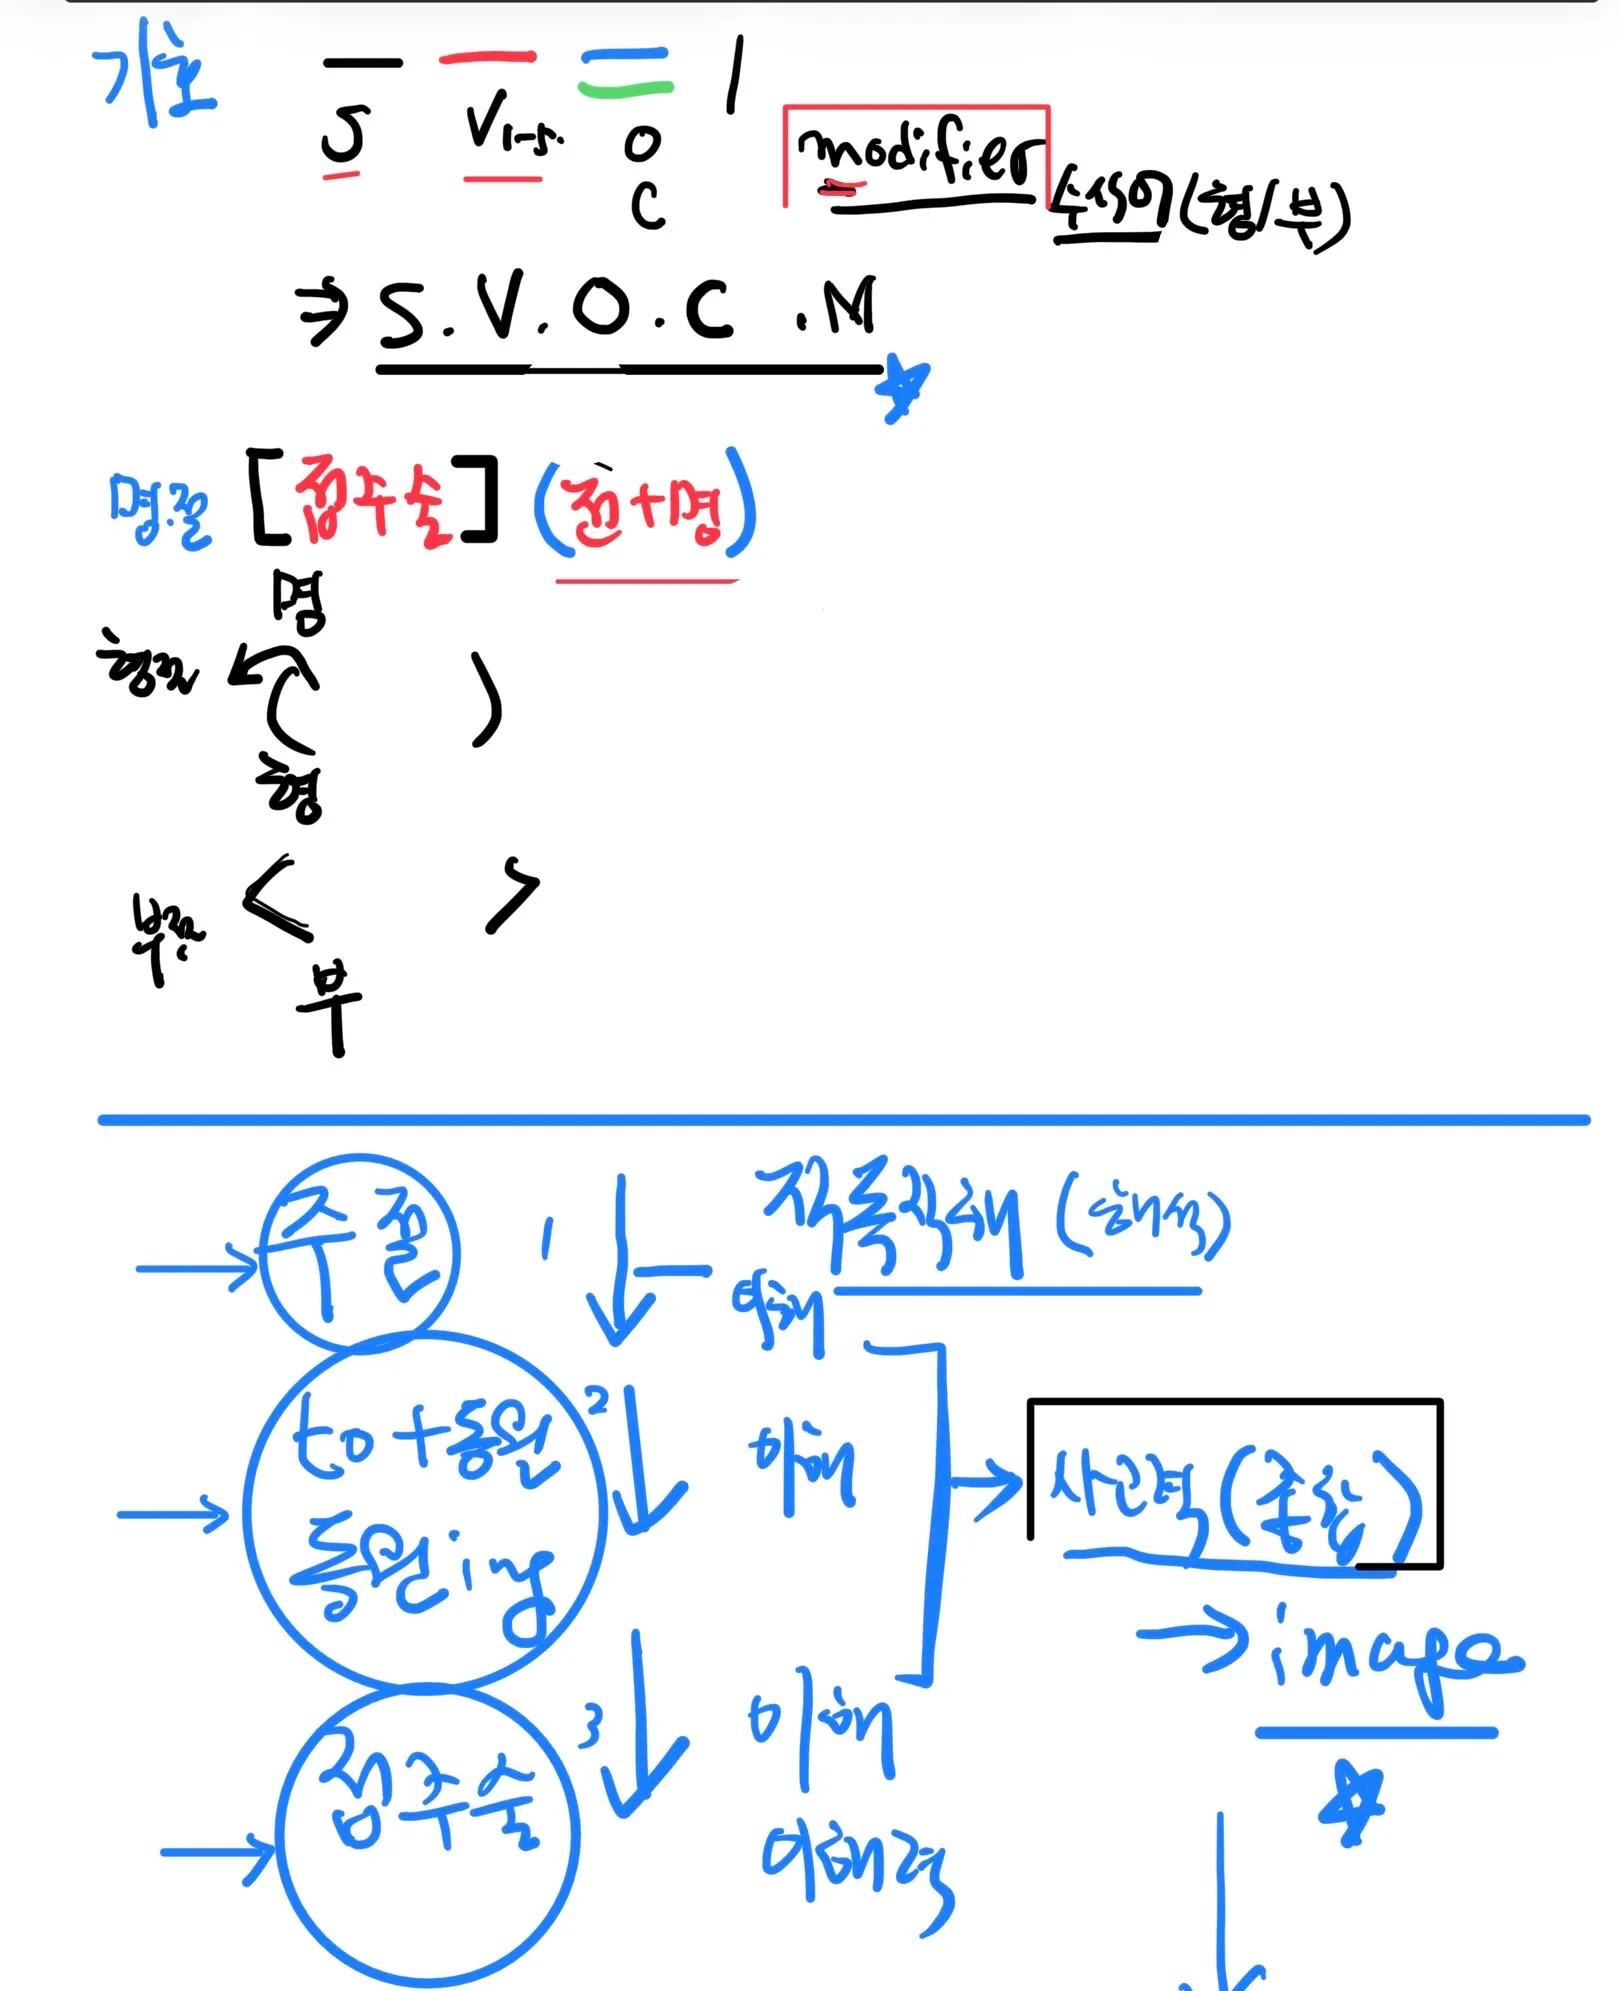 기호
S V1-5. O
C
modifier 수식어(형/부)
⇒ S.V.O.C.M
명.절 [접주술] (전+명)
명
형절 ( )
형
부절 < >
부
주절 1 직독직해 (해석)
이해
to+동원 2
이해
사고력(통합)
동원ing
→ image
3
이해
접주술
이해력